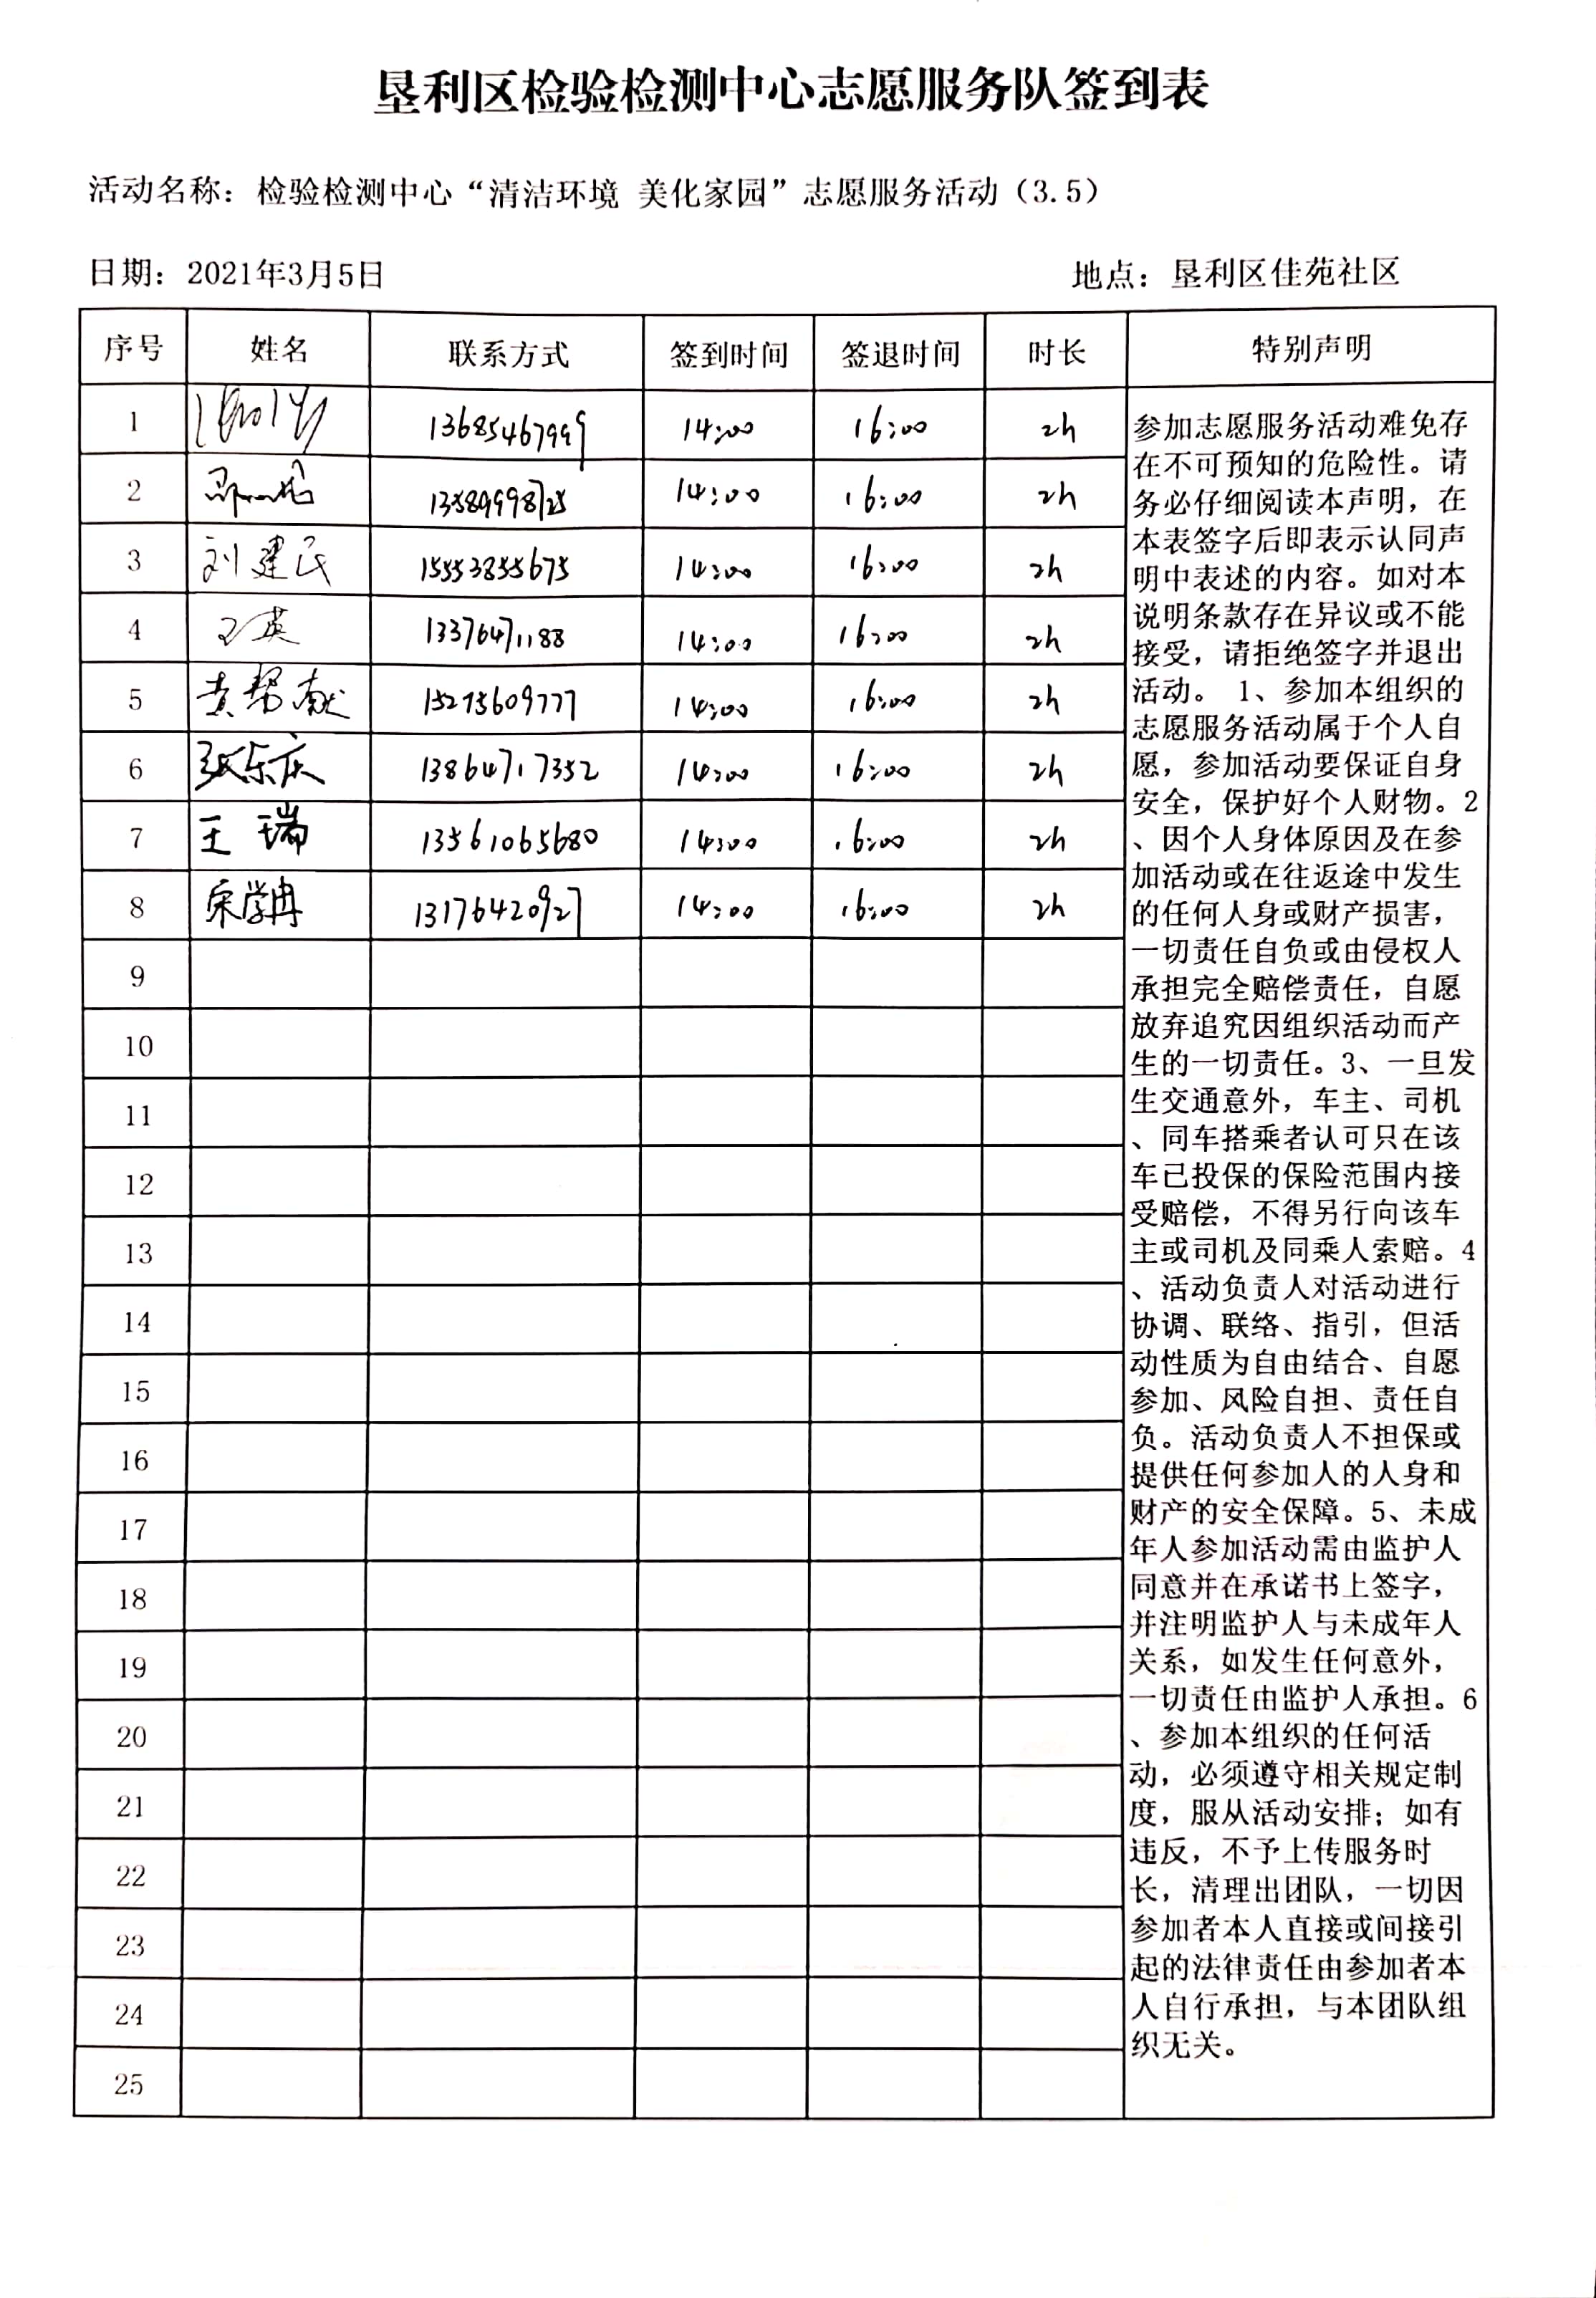 垦利区检验检测中心志愿服务队签到表
活动名称：检验检测中心“清洁环境 美化家园”志愿服务活动（3.5）
日期：2021年3月5日 地点：垦利区佳苑社区
序号 姓名 联系方式 签到时间 签退时间 时长 特别声明
1 13685467999 14:00 16:00 2h
2 13589998725 14:00 16:00 2h
3 刘建民 15553855675 14:00 16:00 2h
4 王英 13376471188 14:00 16:00 2h
5 黄帮献 15275609777 14:00 16:00 2h
6 张东庆 13864717352 14:00 16:00 2h
7 王瑞 13561065680 14:00 16:00 2h
8 宋学冉 13176420927 14:00 16:00 2h
9
10
11
12
13
14
15
16
17
18
19
20
21
22
23
24
25
参加志愿服务活动难免存
在不可预知的危险性。请
务必仔细阅读本声明，在
本表签字后即表示认同声
明中表述的内容。如对本
说明条款存在异议或不能
接受，请拒绝签字并退出
活动。 1、参加本组织的
志愿服务活动属于个人自
愿，参加活动要保证自身
安全，保护好个人财物。2
、因个人身体原因及在参
加活动或在往返途中发生
的任何人身或财产损害，
一切责任自负或由侵权人
承担完全赔偿责任，自愿
放弃追究因组织活动而产
生的一切责任。3、一旦发
生交通意外，车主、司机
、同车搭乘者认可只在该
车已投保的保险范围内接
受赔偿，不得另行向该车
主或司机及同乘人索赔。4
、活动负责人对活动进行
协调、联络、指引，但活
动性质为自由结合、自愿
参加、风险自担、责任自
负。活动负责人不担保或
提供任何参加人的人身和
财产的安全保障。5、未成
年人参加活动需由监护人
同意并在承诺书上签字，
并注明监护人与未成年人
关系，如发生任何意外，
一切责任由监护人承担。6
、参加本组织的任何活
动，必须遵守相关规定制
度，服从活动安排；如有
违反，不予上传服务时
长，清理出团队，一切因
参加者本人直接或间接引
起的法律责任由参加者本
人自行承担，与本团队组
织无关。